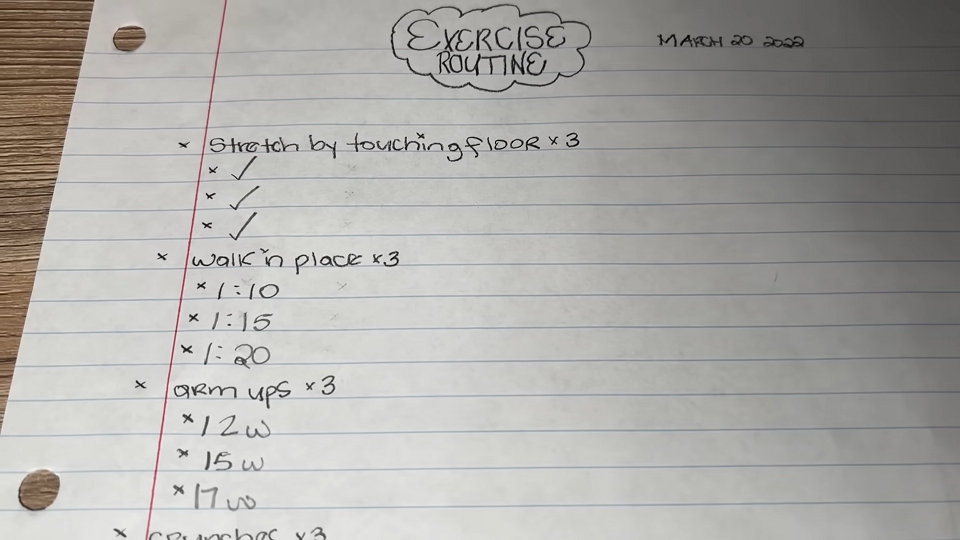 EXERCISE
ROUTINE
MARCH 20 2022
* Stretch by touching floor x 3
* ✓
* ✓
* ✓
* walk in place x3
* 1:10
* 1:15
* 1:20
* arm ups x3
* 12w
* 15w
* 17w
* crunches x3